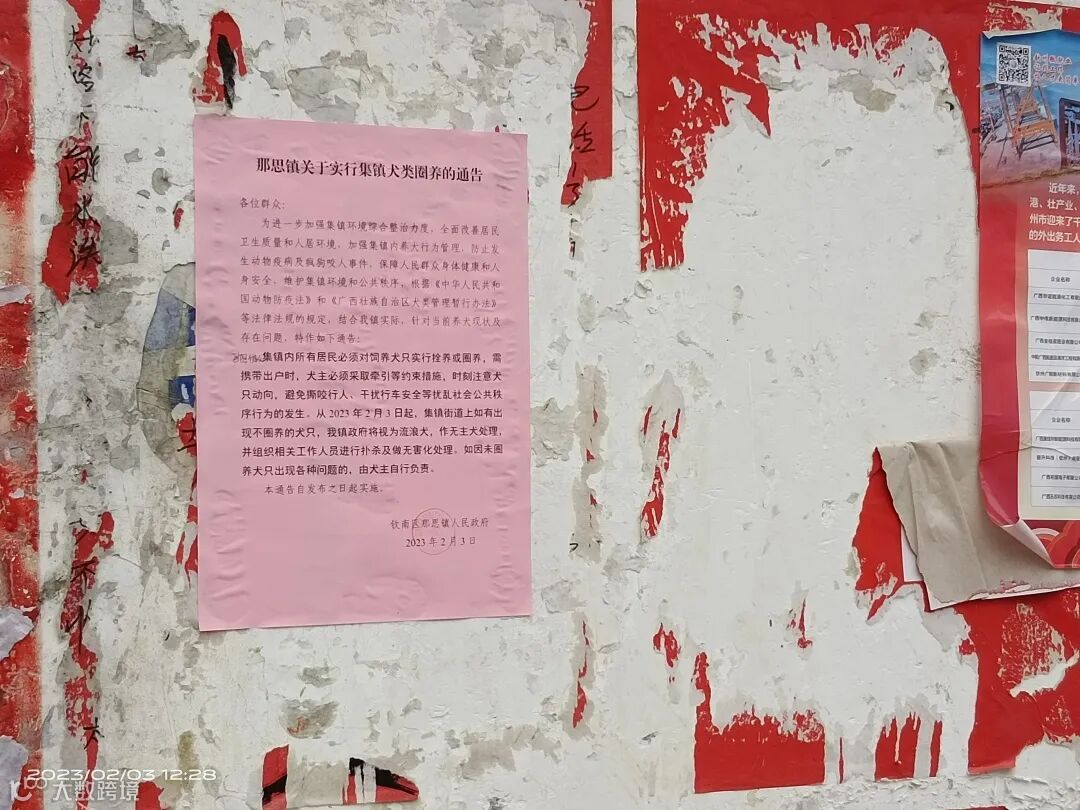 那思镇关于实行集镇犬类圈养的通告
各位群众：
为进一步加强集镇环境综合整治力度，全面改善居民
卫生质量和人居环境，加强集镇内养犬行为管理，防止发
生动物疫病及疯狗咬人事件，保障人民群众身体健康和人
身安全，维护集镇环境和公共秩序，根据《中华人民共和
国动物防疫法》和《广西壮族自治区犬类管理暂行办法》
等法律法规的规定，结合我镇实际，针对当前养犬现状及
存在问题，特作如下通告：
集镇内所有居民必须对饲养犬只实行拴养或圈养，需
携带出户时，犬主必须采取牵引等约束措施，时刻注意犬
只动向，避免撕咬行人、干扰行车安全等扰乱社会公共秩
序行为的发生。从2023年2月3日起，集镇街道上如有出
现不圈养的犬只，我镇政府将视为流浪犬，作无主犬处理，
并组织相关工作人员进行扑杀及做无害化处理。如因未圈
养犬只出现各种问题的，由犬主自行负责。
本通告自发布之日起实施。
钦南区那思镇人民政府
2023年2月3日
近年来，
港、壮产业、
州市迎来了千
的外出务工人
企业名称
企业名称
2023/02/03 12:28
大数跨境